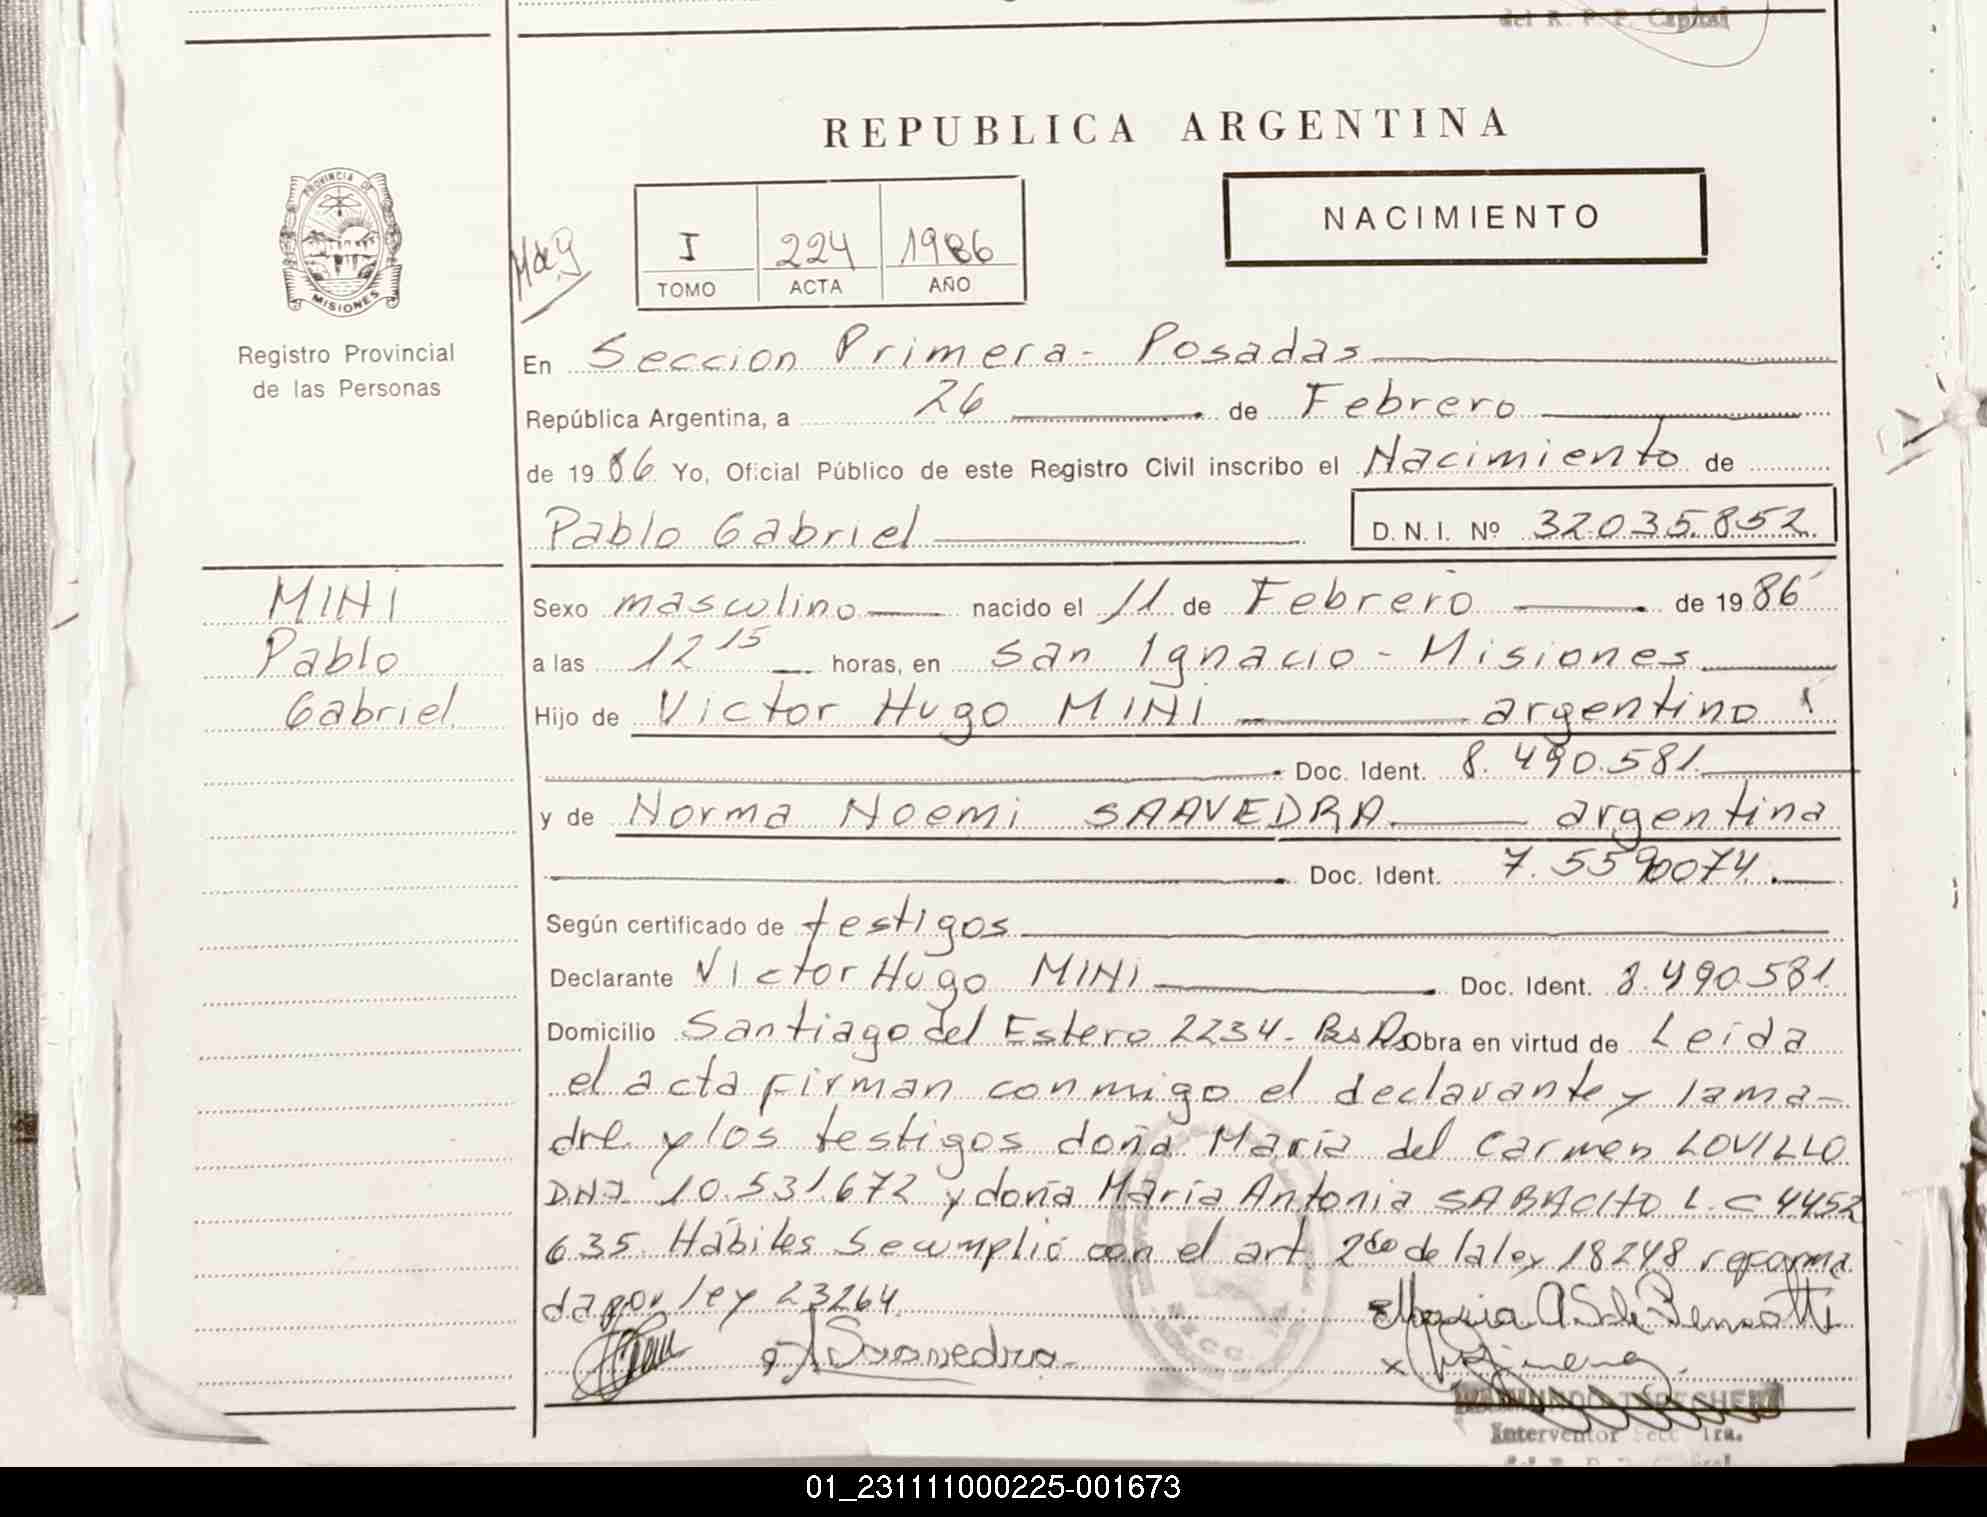 del R. P. P. Capital
REPUBLICA ARGENTINA
PROVINCIA DE
MISIONES
Registro Provincial
de las Personas
I 224 1986
TOMO ACTA AÑO
NACIMIENTO
En Seccion Primera - Posadas
República Argentina, a 26 de Febrero
de 1986 Yo, Oficial Público de este Registro Civil inscribo el Nacimiento de
Pablo Gabriel D. N. I. Nº 32.035.852
MINI
Pablo
Gabriel
Sexo masculino nacido el 11 de Febrero de 1986
a las 12 15 horas, en San Ignacio - Misiones
Hijo de Victor Hugo MINI argentino
Doc. Ident. 8.490.581
y de Norma Noemi SAAVEDRA argentina
Doc. Ident.
Según certificado de testigos
Declarante Victor Hugo MINI Doc. Ident. 8.490.581
Domicilio Santiago del Estero 2234 - Bs As Obra en virtud de Leida
el acta firman conmigo el declarante y la ma-
dre y los testigos doña María del Carmen LOVILLO
D.N.I. 10.531.672 y doña María Antonia L.C 4452
635 Hábiles Se cumplió con el art. 2do de la ley 18248 reforma
da por ley 23264
Saavedra
Interventor Secc 1ra.
01_231111000225-001673